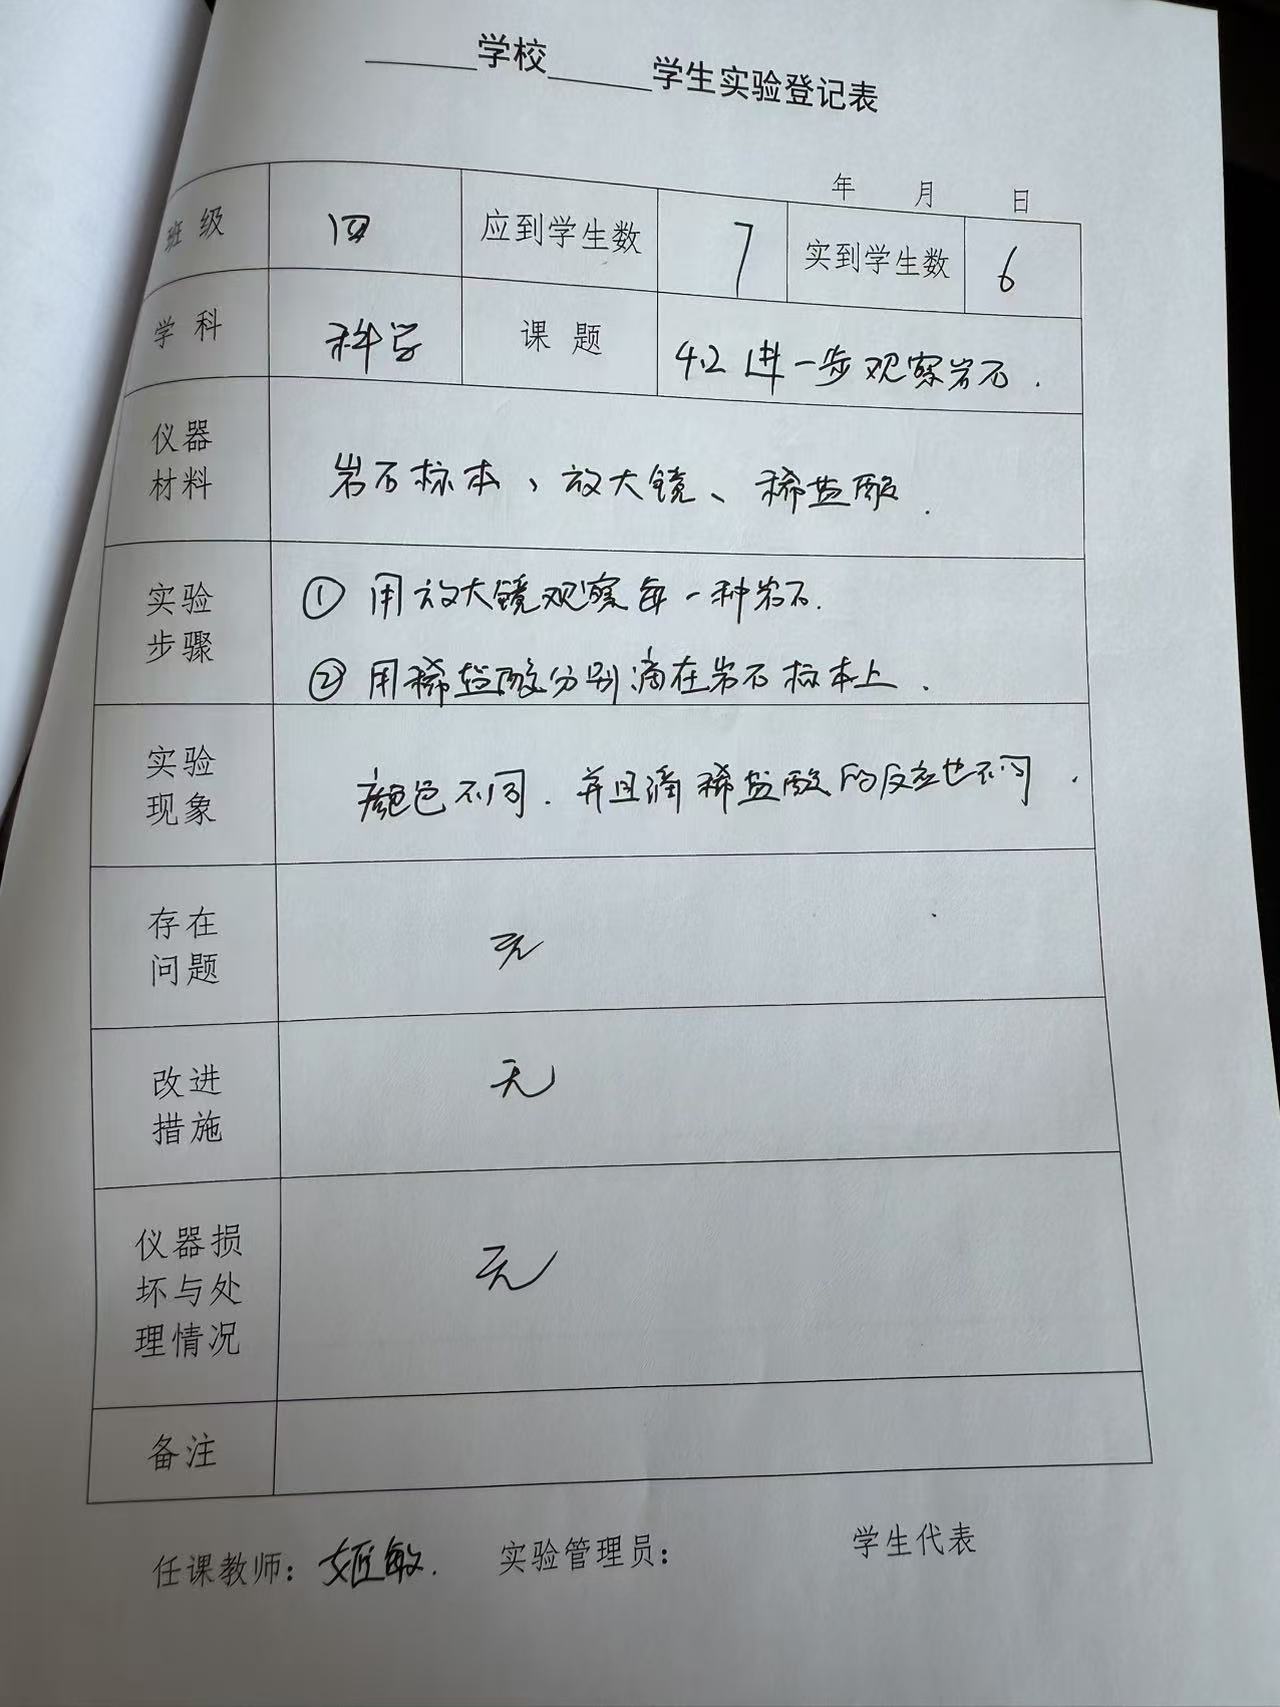 ______学校______学生实验登记表
年 月 日
班级 四 应到学生数 7 实到学生数 6
学科 科学 课题 4.2 进一步观察岩石.
仪器
材料
岩石标本、放大镜、稀盐酸.
实验
步骤
① 用放大镜观察每一种岩石.
② 用稀盐酸分别滴在岩石标本上.
实验
现象
颜色不同. 并且滴稀盐酸的反应也不同.
存在
问题
无
改进
措施
无
仪器损
坏与处
理情况
无
备注
任课教师: 姬敏. 实验管理员: 学生代表